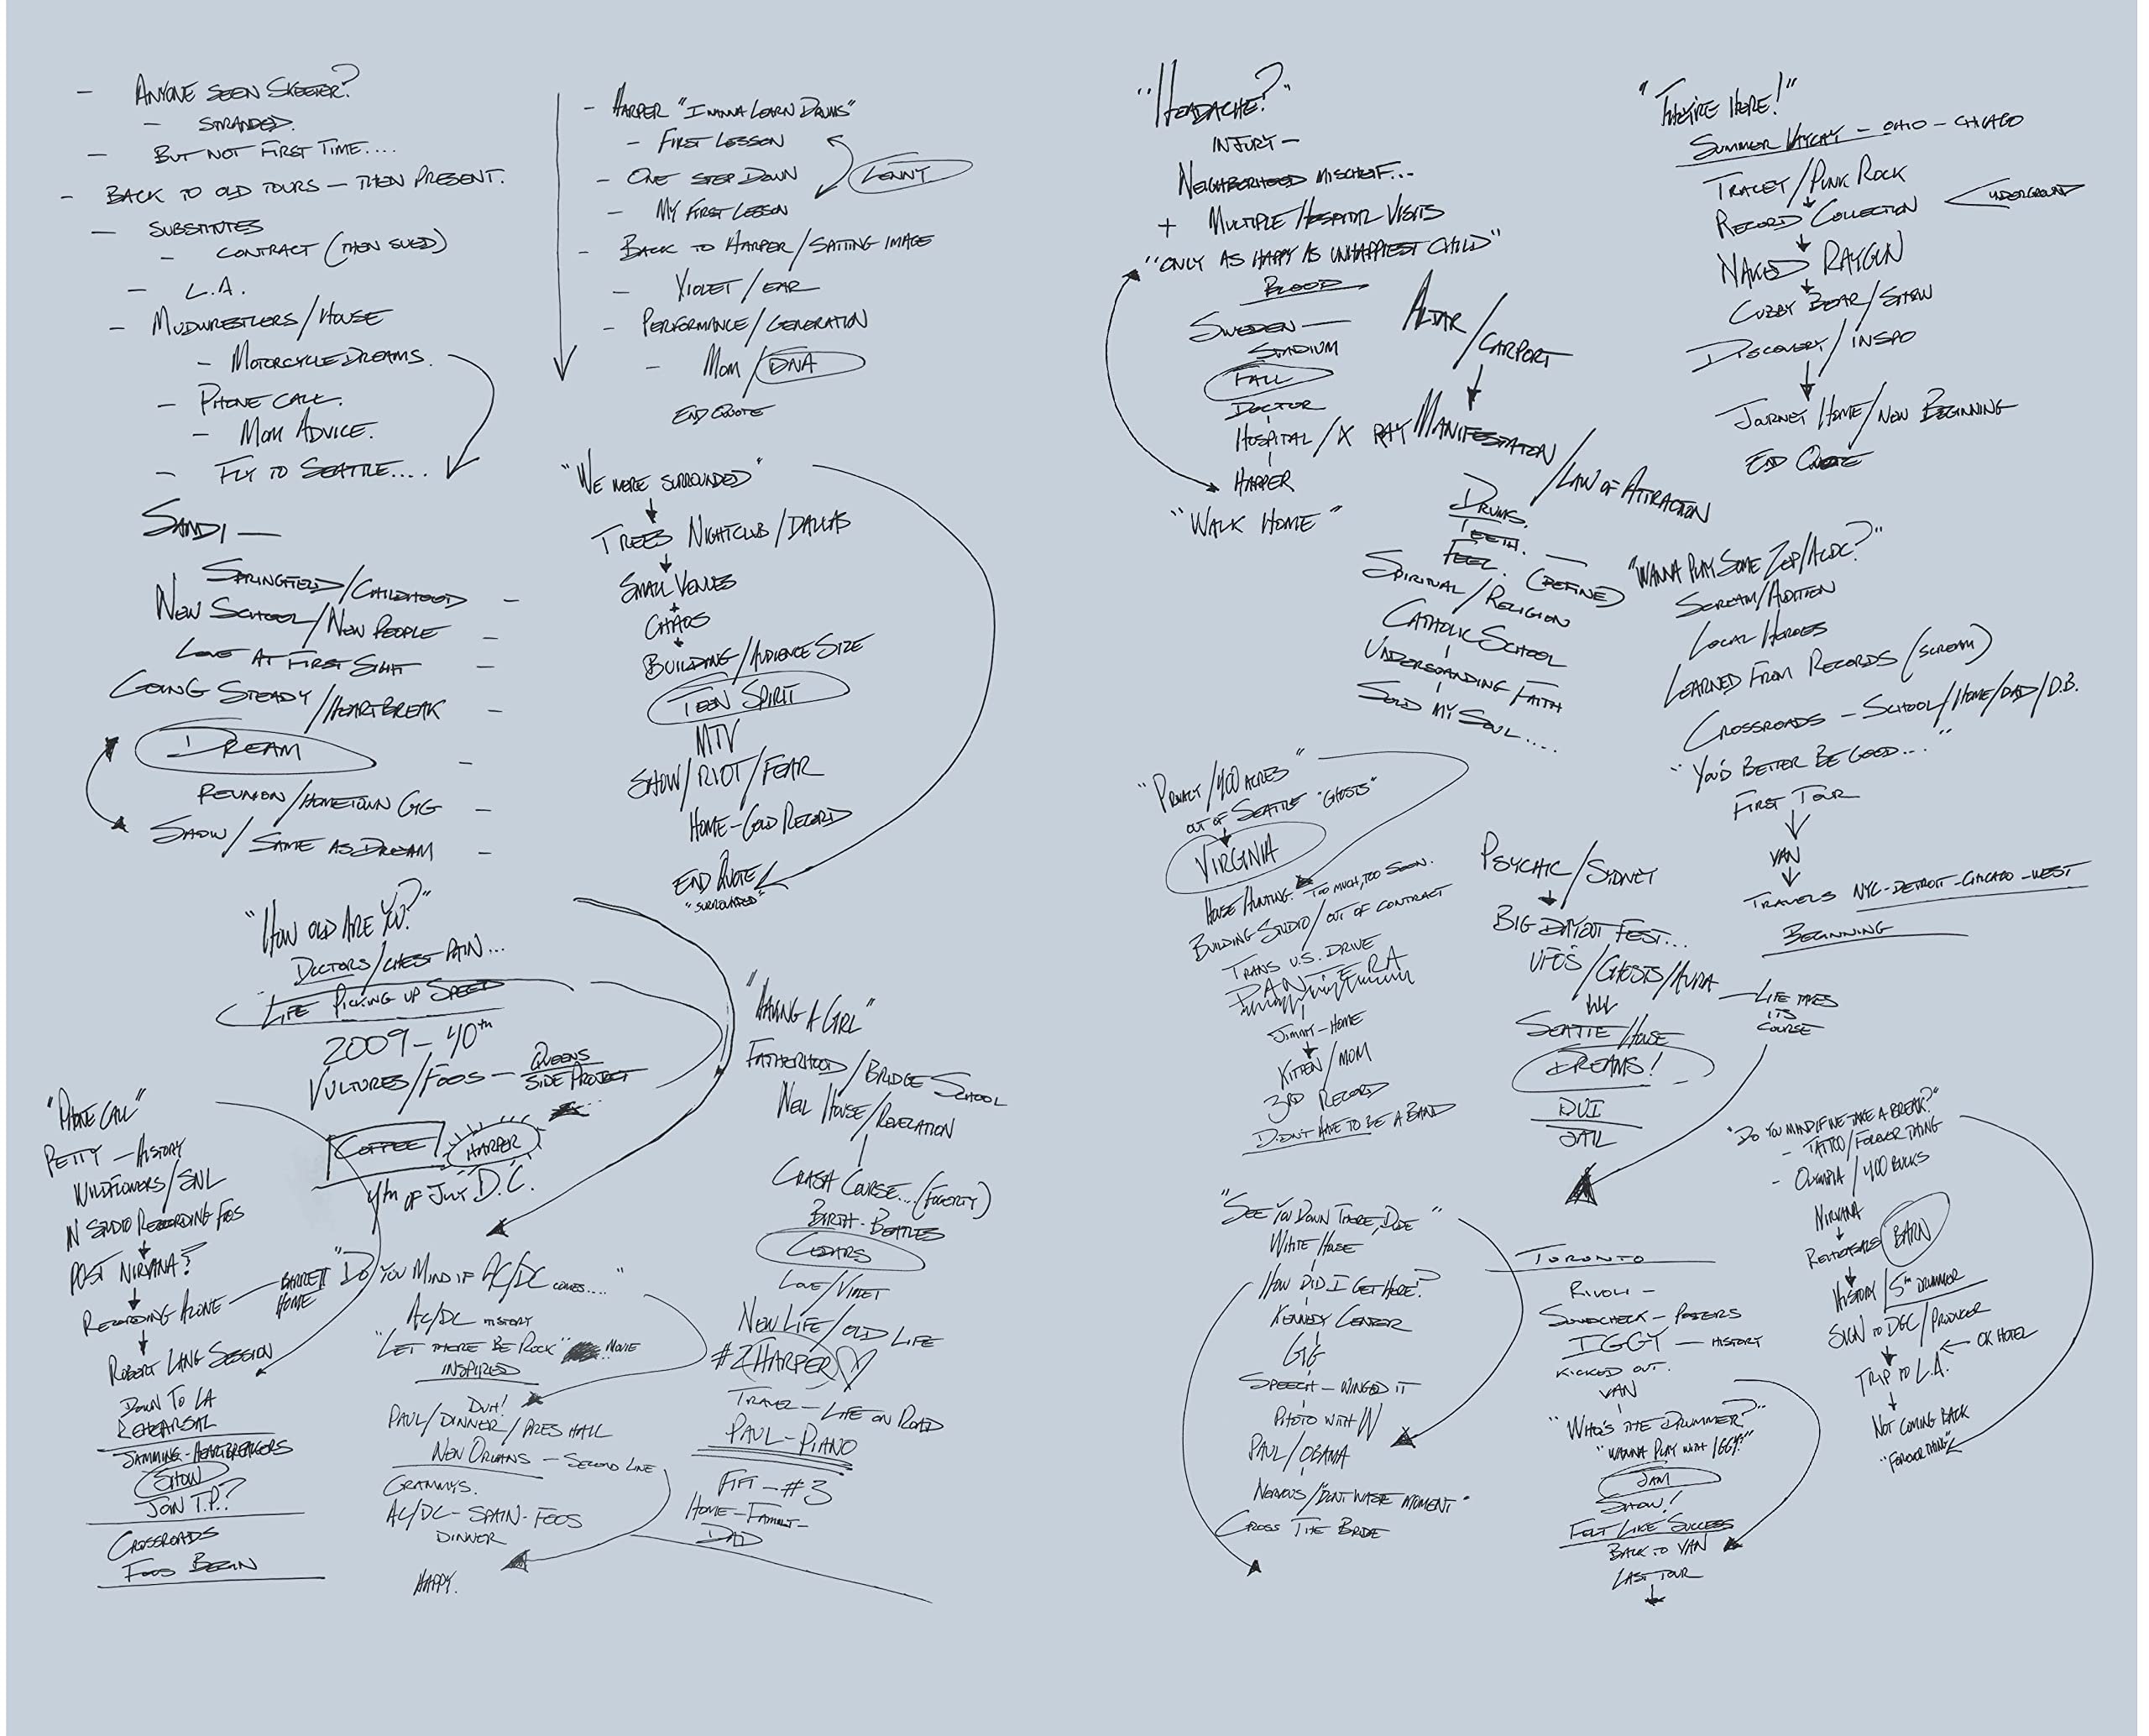 - ANYONE SEEN SKEETER?
- STRANDED.
- BUT NOT FIRST TIME....
- BACK TO OLD TOURS - THEN PRESENT.
- SUBSTITUTES
- CONTRACT (THEN SUED)
- L.A.
- MUDWRESTLERS/HOUSE
- MOTORCYCLE DREAMS.
- PHONE CALL.
- MOM ADVICE.
- FLY TO SEATTLE....
SANDI -
SPRINGFIELD/CHILDHOOD -
NEW SCHOOL/NEW PEOPLE -
LOVE AT FIRST SIGHT -
GOING STEADY/HEARTBREAK -
DREAM -
REUNION/HOMETOWN GIG -
SHOW/SAME AS DREAM -
- HARPER "I WANNA LEARN DRUMS"
- FIRST LESSON
- ONE STEP DOWN
LENNY
- MY FIRST LESSON
- BACK TO HARPER/SATING IMAGE
- VIOLET/EAR
- PERFORMANCE/GENERATION
- MOM/DNA
END QUOTE
"WE WERE SURROUNDED"
TREES NIGHTCLUB/DALLAS
SMALL VENUES
+
CHAOS
+
BUILDING/AUDIENCE SIZE
TEEN SPIRIT
MTV
SHOW/RIOT/FEAR
HOME-GOLD RECORD
END QUOTE
"SURROUNDED"
"HOW OLD ARE YOU?"
DOCTORS/CHEST PAIN...
LIFE PICKING UP SPEED
2009-40th
VULTURES/FOOS - QUEENS
SIDE PROJECT
COFFEE HARPER
4th OF JULY D.C.
"PHONE CALL"
PETTY - HISTORY
WILDFLOWERS/SNL
IN STUDIO RECORDING FOOS
POST NIRVANA?
RECORDING ALONE - BARRETT
HOME
ROBERT LANG SESSION
DOWN TO LA
REHEARSAL
JAMMING-HEARTBREAKERS
SHOW
JOIN T.P.?
CROSSROADS
FOOS BEGIN
"DO YOU MIND IF AC/DC COMES...."
AC/DC HISTORY
"LET THERE BE ROCK" MOVIE
INSPIRED
DUH!
PAUL/DINNER/PRES HALL
NEW ORLEANS - SECOND LINE
GRAMMYS.
AC/DC-SPAIN-FOOS
DINNER
HAPPY.
"HAVING A GIRL"
FATHERHOOD/BRIDGE SCHOOL
NEIL HOUSE/REVELATION
CRASH COURSE...(FOGERTY)
BIRTH-BEATLES
CEDARS
LOVE/VIOLET
NEW LIFE/OLD LIFE
#2 HARPER ♡
TRAVEL-LIFE ON ROAD
PAUL-PIANO
FIFI-#3
HOME-FAMILY-
DAD
"HEADACHE?"
INJURY-
NEIGHBORHOOD MISCHEIF...
+ MULTIPLE HOSPITAL VISITS
"ONLY AS HAPPY AS UNHAPPIEST CHILD"
BLOOD
SWEDEN-
STADIUM
FALL
DOCTOR
HOSPITAL/X RAY
HARPER
"WALK HOME"
ALTAR/CARPORT
MANIFESTATION/LAW OF ATTRACTION
DRUMS.
TEETH. -
FEEL. (DEFINED)
SPIRITUAL/RELIGION
CATHOLIC SCHOOL
UNDERSANDING FAITH
SOLD MY SOUL....
"THEY'RE HERE!"
SUMMER VAYCAY - OHIO - CHICAGO
TRACEY/PUNK ROCK
RECORD COLLECTION UNDERGROUND
NAKED RAYGUN
CUBBY BEAR/SHOW
DISCOVERY/INSPO
JOURNEY HOME/NEW BEGINNING
END QUOTE
"WANNA PLAY SOME ZEP/ACDC?"
SCREAM/AUDITION
LOCAL HEROES
LEARNED FROM RECORDS (SCREAM)
CROSSROADS - SCHOOL/HOME/DAD/D.B.
"YOU'D BETTER BE GOOD..."
FIRST TOUR
VAN
TRAVELS NYC-DETROIT-CHICAGO-WEST
BEGINNING
"PRIVACY/400 ACRES"
OUT OF SEATTLE "GHOSTS"
VIRGINIA
HOUSE HUNTING. TOO MUCH, TOO SOON.
BUILDING STUDIO/OUT OF CONTRACT
TRANS U.S. DRIVE
PANTERA
JIMMY-HOME
KITTEN/MOM
3RD RECORD
DIDN'T HAVE TO BE A BAND
PSYCHIC/SYDNEY
BIG DAY OUT FEST...
UFOS/GHOSTS/AURA - LIFE TAKES
ITS
COURSE
SEATTLE HOUSE
DREAMS!
DUI
JAIL
"SEE YOU DOWN THERE, DUDE"
WHITE HOUSE
HOW DID I GET HERE?
KENNEDY CENTER
GIG
SPEECH-WINGED IT
PHOTO WITH W
PAUL/OBAMA
NERVOUS/"DON'T WASTE MOMENT"
CROSS THE BRIDE
TORONTO
RIVOLI-
SOUNDCHECK-POSTERS
IGGY - HISTORY
KICKED OUT.
VAN
"WHO'S THE DRUMMER?"
"WANNA PLAY WITH IGGY?"
JAM
SHOW!
FELT LIKE SUCCESS
BACK TO VAN
LAST TOUR
"DO YOU MIND IF WE TAKE A BREAK?"
- TATTOO/FOREVER THING
- OLYMPIA/400 BUCKS
NIRVANA
REHEARSALS BARN
HISTORY/5th DRUMMER
SIGN TO DGC/PRODUCER
TRIP TO L.A. OK HOTEL
NOT COMING BACK
"FOREVER THING"